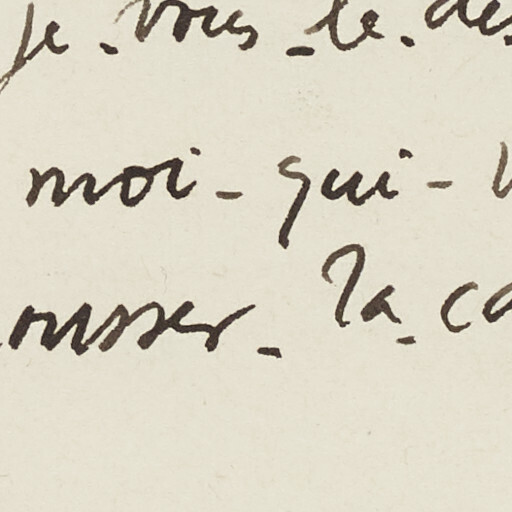 je - vous - le - des
moi - qui - v
ousser - la - ca